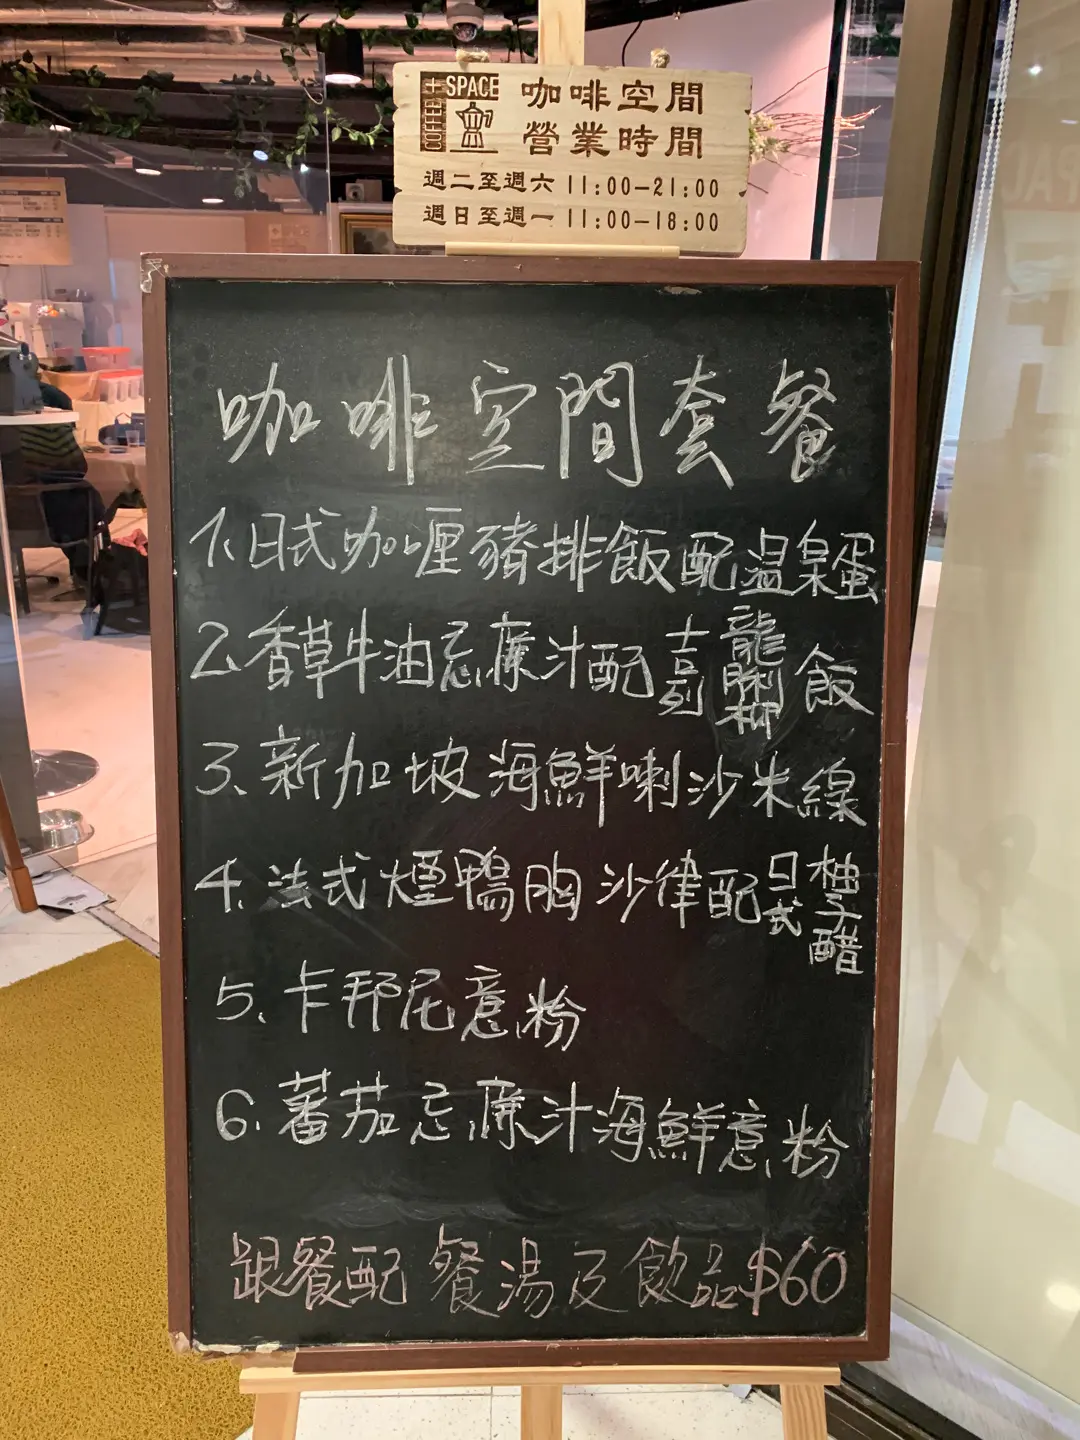 SPACE
咖啡空間
營業時間
週二至週六 11:00-21:00
週日至週一 11:00-18:00
咖啡空間套餐
1、日式咖喱豬排飯配温泉蛋
2、香草牛油忌廉汁配吉列龍脷柳飯
3、新加坡海鮮喇沙米線
4、法式煙鴨胸沙律配日式柚子醋
5、卡邦尼意粉
6、蕃茄忌廉汁海鮮意粉
跟餐配餐湯及飲品$60